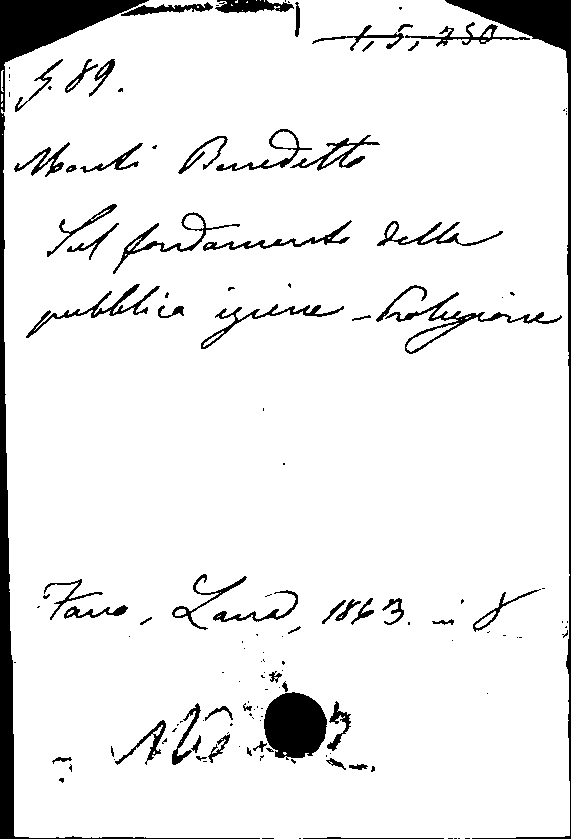 1, 5, 250
G. 89.
Monti Benedetto
Sul fondamento della
pubblica igiene - Prolusione
Fano, Lana, 1863. in 8